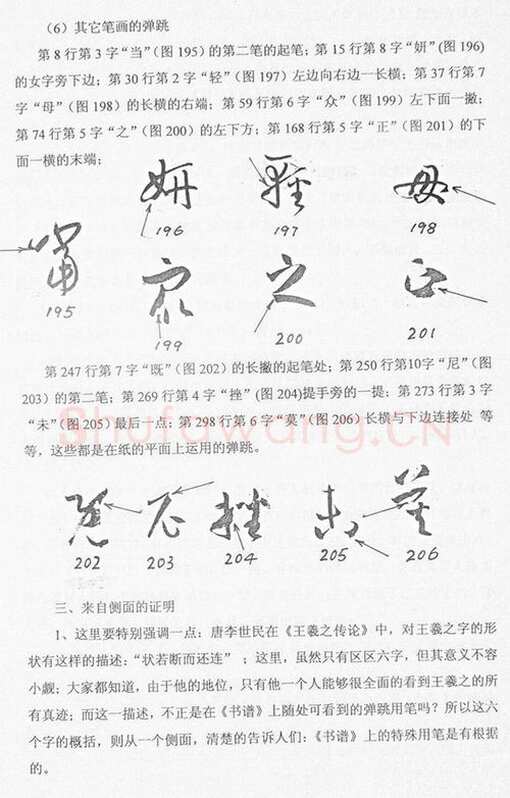 （6）其它笔画的弹跳
第 8 行第 3 字“当”（图 195）的第二笔的起笔；第 15 行第 8 字“妍”(图 196)
的女字旁下边；第 30 行第 2 字“轻”（图 197）左边向右边一长横；第 37 行第 7
字“母”（图 198）的长横的右端；第 59 行第 6 字“众”（图 199）左下面一撇；
第 74 行第 5 字“之”（图 200）的左下方；第 168 行第 5 字“正”（图 201）的下
面一横的末端；
妍 轻 母
196 197 198
当 众 之 正
195 199 200 201
第 247 行第 7 字“既”（图 202）的长撇的起笔处；第 250 行第10字“尼”（图
203）的第二笔；第 269 行第 4 字“挫”（图 204)提手旁的一提；第 273 行第 3 字
“未”（图 205）最后一点；第 298 行第 6 字“莫”（图 206）长横与下边连接处 等
等，这些都是在纸的平面上运用的弹跳。
Shufawang.CN
202 203 204 205 206
三、来自侧面的证明
1、这里要特别强调一点：唐李世民在《王羲之传论》中，对王羲之字的形
状有这样的描述：“状若断而还连” ；这里，虽然只有区区六字，但其意义不容
小觑；大家都知道，由于他的地位，只有他一个人能够很全面的看到王羲之的所
有真迹；而这一描述，不正是在《书谱》上随处可看到的弹跳用笔吗？所以这六
个字的概括，则从一个侧面，清楚的告诉人们：《书谱》上的特殊用笔是有根据
的。